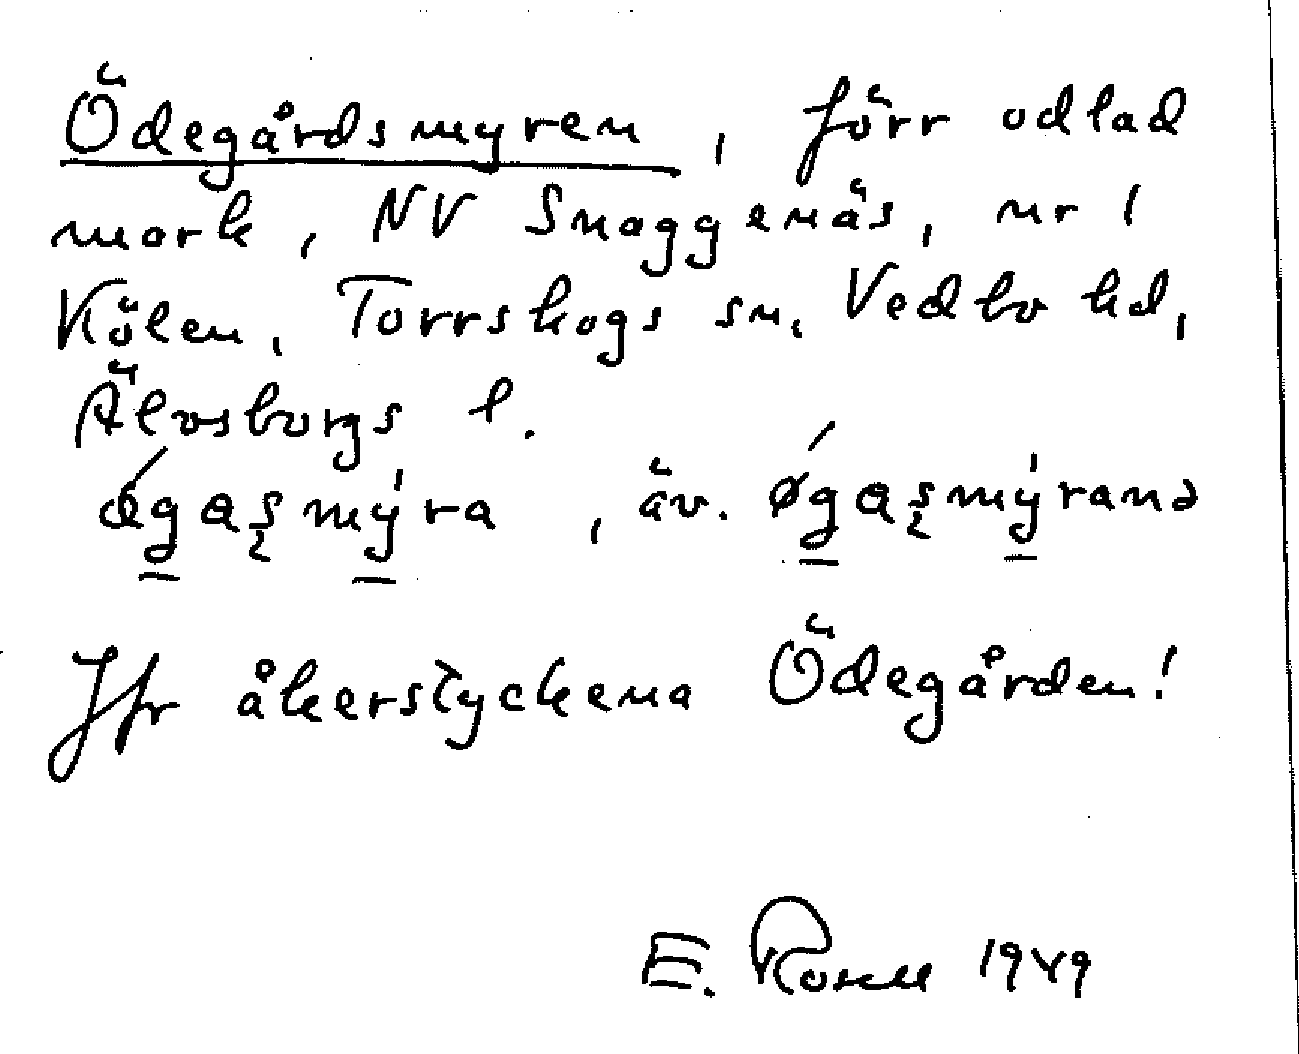 Ödegårdsmyren, förr odlad
mark, NV Snaggenäs, nr 1
Kölen, Torrskogs sn, Vedbo hd,
Älvsborgs l.
ǿgaşmýra, äv. ǿgaşmýrana
Jfr åkerstyckena Ödegården!
E. Rosell 1949